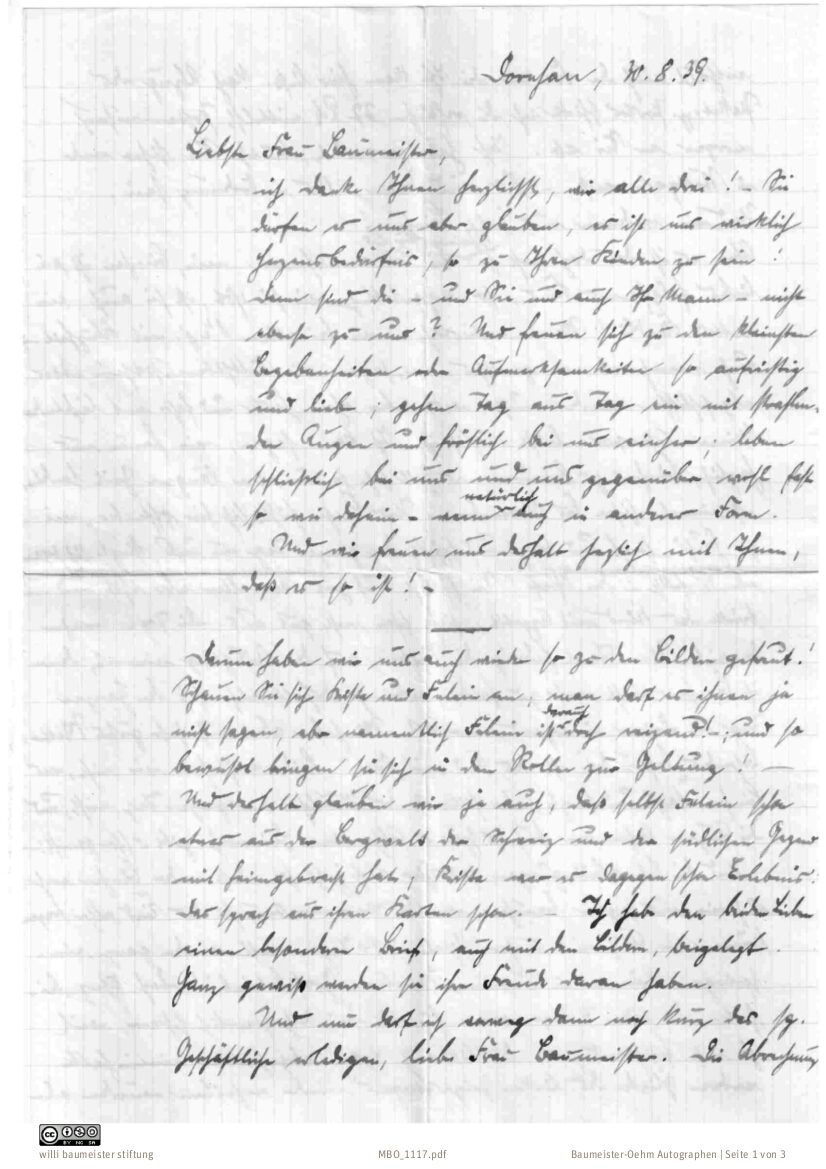 Dornhan, 30.8.39.
Liebste Frau Baumeister,
ich danke Ihnen herzlichst, wir alle drei! – Sie
dürfen es uns aber glauben, es ist uns wirklich
Herzensbedürfnis, so zu Ihren Kindern zu sein!
Denn sind die – und Sie und auch Ihr Mann – nicht
ebenso zu uns? Und freuen sich zu den kleinsten
Begebenheiten oder Aufmerksamkeiten so aufrichtig
und lieb; gehen Tag aus Tag ein mit strahlen-
den Augen und fröhlich bei uns einher; leben
schliesslich bei uns und uns gegenüber wohl fast
so wie daheim – wenn natürlich auch in anderer Form.
Und wir freuen uns deshalb herzlich mit Ihnen,
daß es so ist! –
Darum haben wir uns auch wieder so zu den Bildern gefreut!
Schauen Sie sich Krista und Felein an, man darf es ihnen ja
nicht sagen, aber namentlich Felein ist darauf doch reizend! –; und so
bewusst bringen sie sich in den Rollen zur Geltung! –
Und deshalb glauben wir ja auch, daß selbst Felein schon
etwas aus der Bergwelt der Schweiz und der südlichen Gegend
mit heimgebracht hat; Krista war es dagegen schon Erlebnis:
das sprach aus ihren Karten schon. – Ich habe den beiden Lieben
einen besonderen Brief, auch mit den Bildern, beigelegt.
Ganz gewiß werden sie ihre Freude daran haben.
Und nun darf ich vorweg dann noch kurz das sg.
Geschäftliche erledigen, liebe Frau Baumeister. Die Abrechnung
willi baumeister stiftung
MBO_1117.pdf
Baumeister-Oehm Autographen | Seite 1 von 3
CC BY NC SA